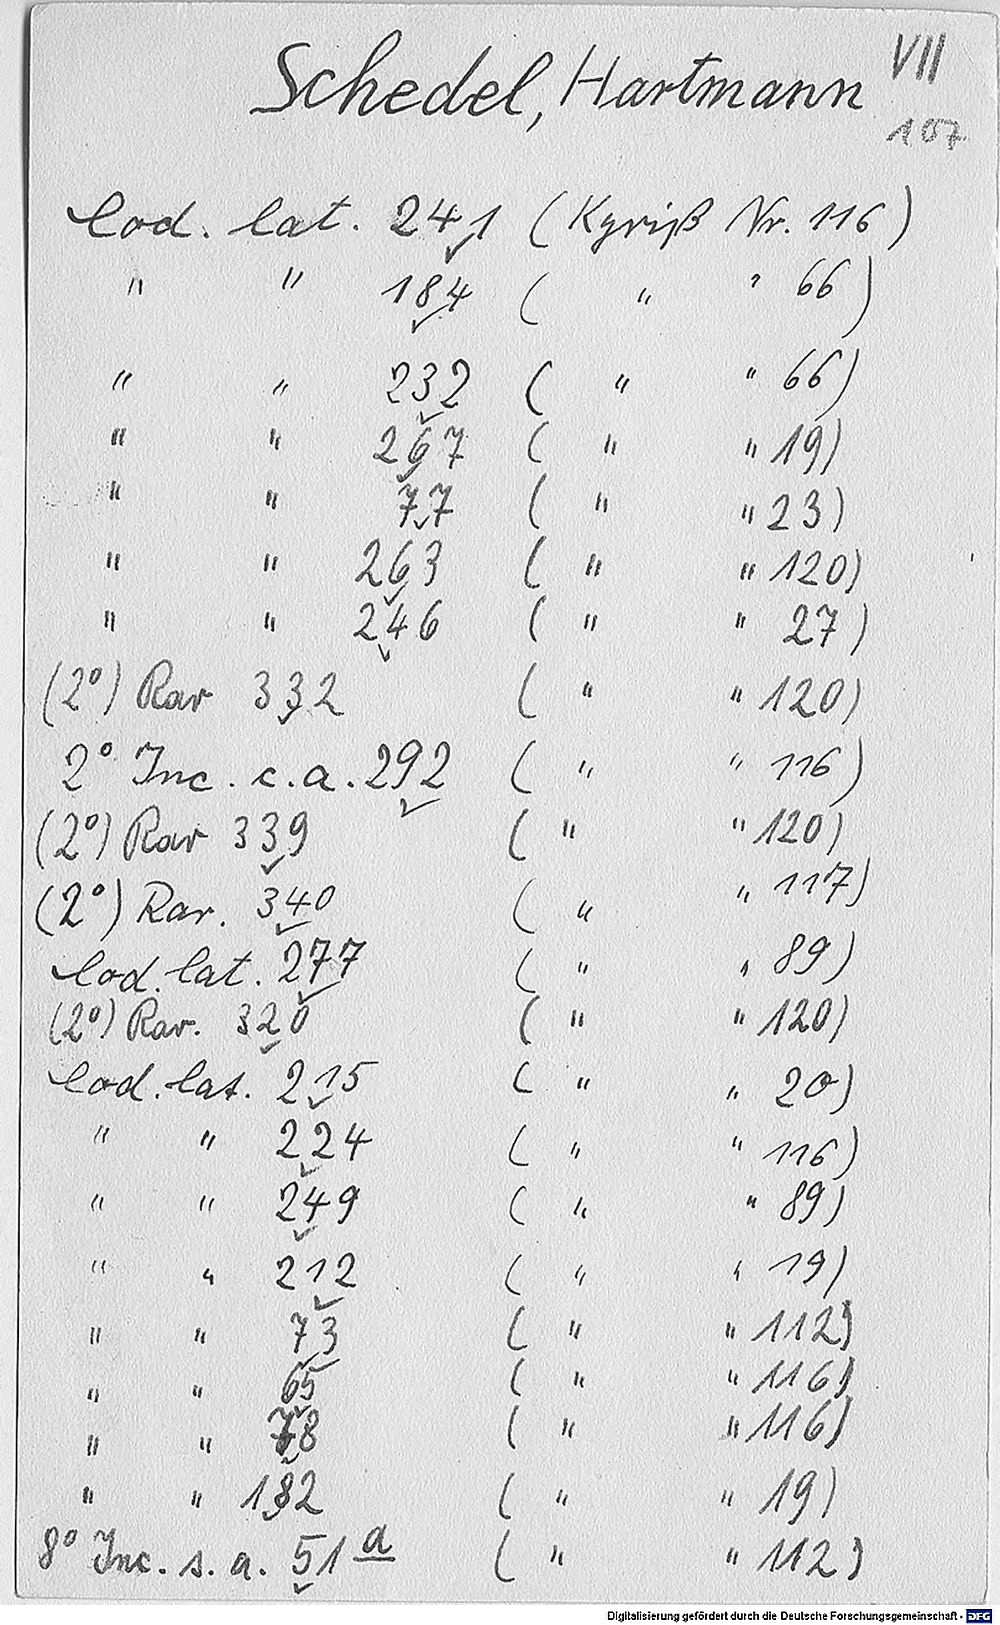 Schedel, Hartmann VII
107
Cod. lat. 241 (Kyriß Nr. 116)
" " 184 ( " " 66)
" " 232 ( " " 66)
" " 267 ( " " 19)
" " 77 ( " " 23)
" " 263 ( " " 120)
" " 246 ( " " 27)
(2°) Rar 332 ( " " 120)
2° Inc. c.a. 292 ( " " 116)
(2°) Rar 339 ( " " 120)
(2°) Rar. 340 ( " " 117)
Cod. lat. 277 ( " " 89)
(2°) Rar. 320 ( " " 120)
Cod. lat. 215 ( " " 20)
" " 224 ( " " 116)
" " 249 ( " " 89)
" " 212 ( " " 19)
" " 73 ( " " 112)
" " 65 ( " " 116)
" " 78 ( " " 116)
" " ( " " 19)
8° Inc. s. a. 51 a ( " " 112)
Digitalisierung gefördert durch die Deutsche Forschungsgemeinschaft - DFG